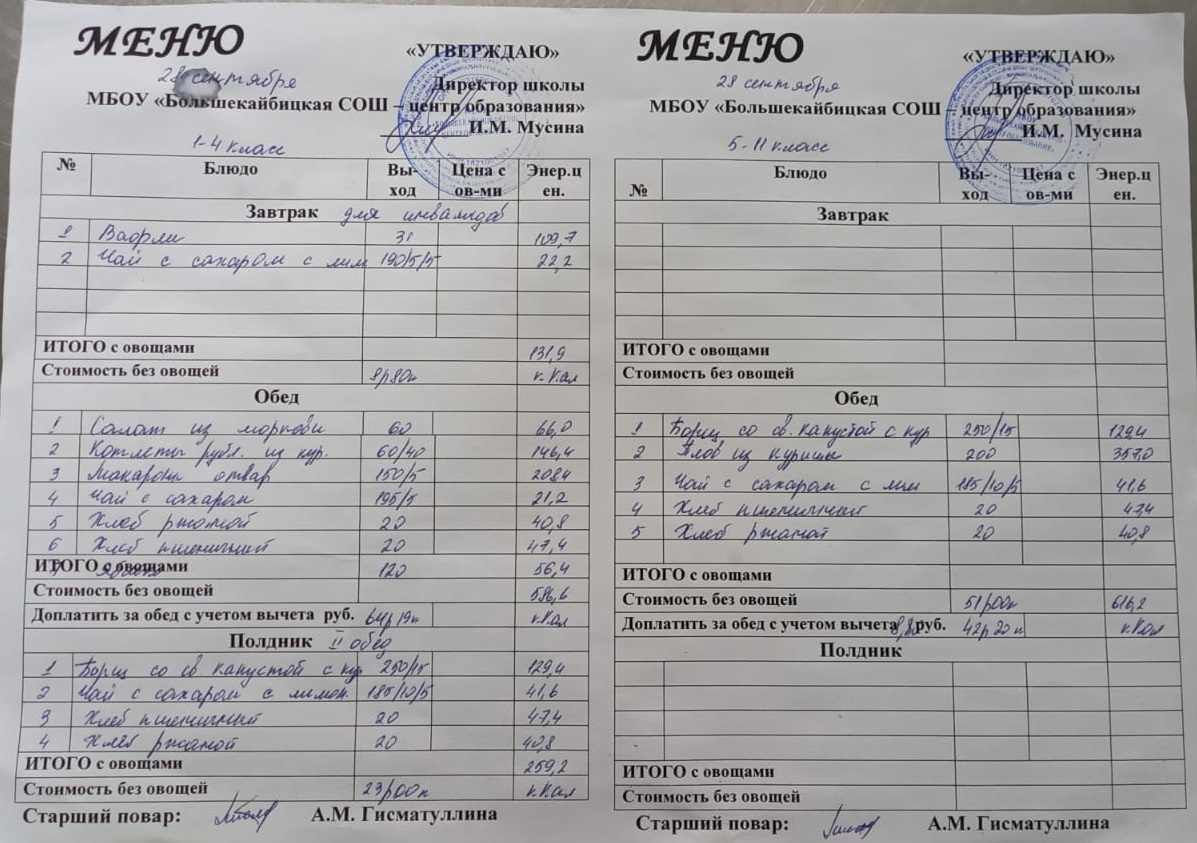 МЕНЮ
«УТВЕРЖДАЮ»
28 сентября
Директор школы
МБОУ «Большекайбицкая СОШ – центр образования»
И.М. Мусина
1-4 класс
№ Блюдо Вы-ход Цена с ов-ми Энер.ц ен.
Завтрак для инвалидов
1 Вафли 31 109,7
2 Чай с сахаром с лим 190/5/5 22,2
ИТОГО с овощами 131,9
Стоимость без овощей 8р80к к.Кал
Обед
1 Салат из моркови 60 66,0
2 Котлеты рубл. из кур. 60/40 146,4
3 Макароны отвар 150/5 208,4
4 Чай с сахаром 195/5 21,2
5 Хлеб ржаной 20 40,8
6 Хлеб пшеничный 20 47,4
ИТОГО с овощами 120 56,4
Стоимость без овощей 586,6
Доплатить за обед с учетом вычета руб. 64р19к к.Кал
Полдник II обед
1 Борщ со св. капустой с кур 250/15 129,4
2 Чай с сахаром с лимон. 185/10/5 41,6
3 Хлеб пшеничный 20 47,4
4 Хлеб ржаной 20 40,8
ИТОГО с овощами 259,2
Стоимость без овощей 23р00к к.Кал
Старший повар: А.М. Гисматуллина
МЕНЮ
«УТВЕРЖДАЮ»
28 сентября
Директор школы
МБОУ «Большекайбицкая СОШ – центр образования»
И.М. Мусина
5-11 класс
№ Блюдо Вы-ход Цена с ов-ми Энер.ц ен.
Завтрак
ИТОГО с овощами
Стоимость без овощей
Обед
1 Борщ со св. капустой с кур 250/15 129,4
2 Плов из курицы 200 357,0
3 Чай с сахаром с лим 185/10/5 41,6
4 Хлеб пшеничный 20 47,4
5 Хлеб ржаной 20 40,8
ИТОГО с овощами
Стоимость без овощей 51р00к 616,2
Доплатить за обед с учетом вычета руб. 42р20к к.Кал
Полдник
ИТОГО с овощами
Стоимость без овощей
Старший повар: А.М. Гисматуллина